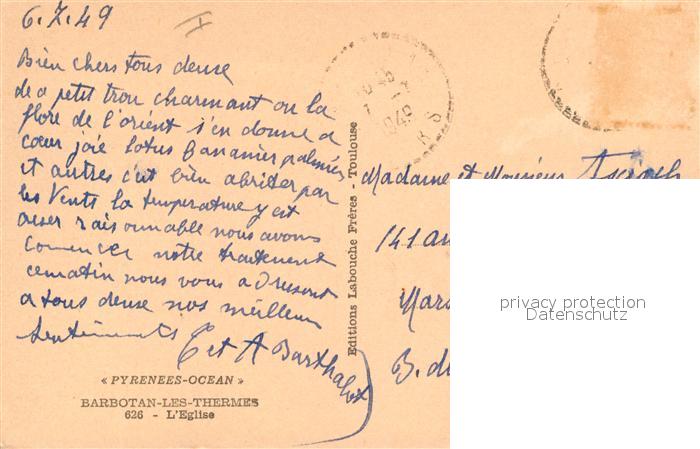 6.7.49
Bien chers tous deuse
de a petit trou charmant ou la
flore de l'orient s'en donne a
cœur joie lotus bananier palmier
et autres c'et bien abriter par
les Vents la temperature y est
aser raisounnable nous avons
Comencer notre traitement
cematin nous vous adresont
a tous deuse nos meilleur
sentiments
C et A Barthalot
« PYRENEES-OCEAN »
BARBOTAN-LES-THERMES
626 - L'Eglise
Editions Labouche Frères - Toulouse
1949
Madame et Monsieur
141
B. d
privacy protection
Datenschutz